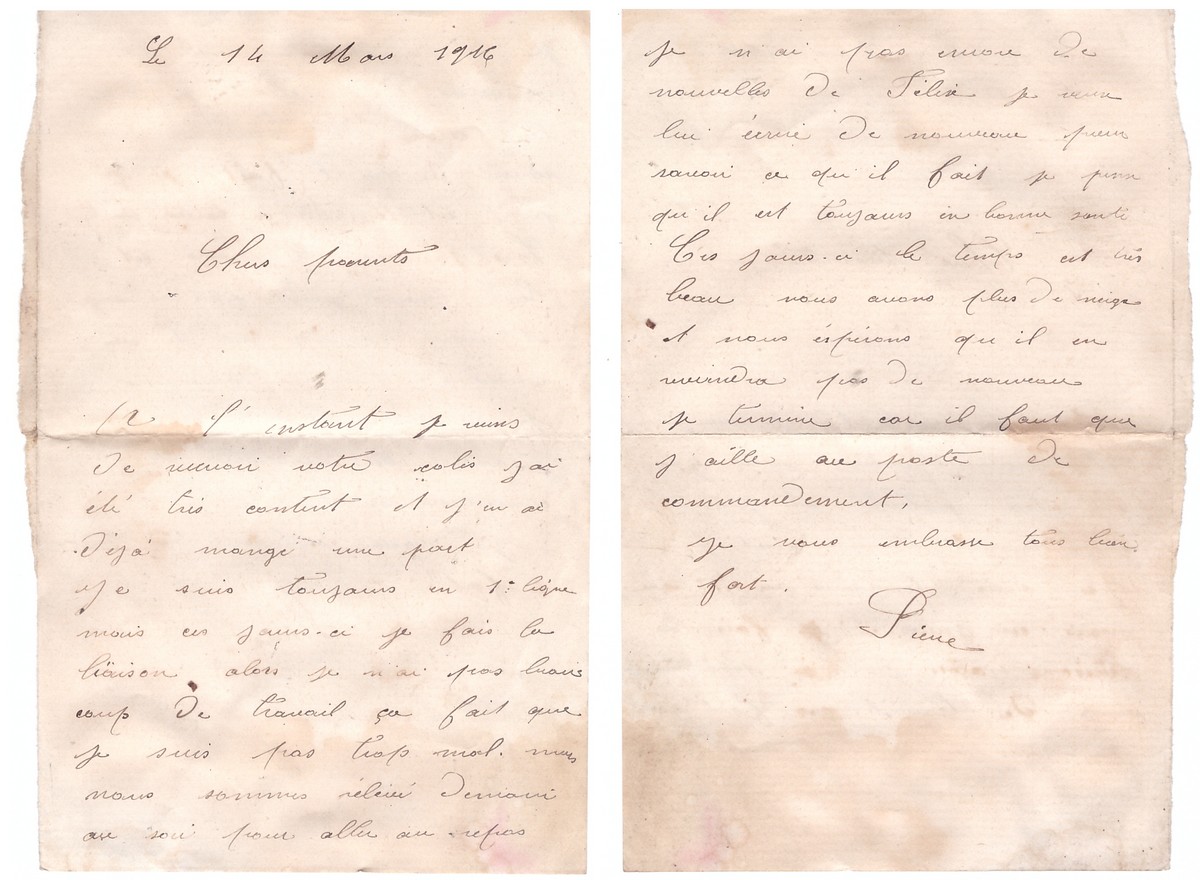 Le 14 Mars 1916
Chers parents
A l'instant je viens
de recevoir votre colis j'ai
été très content et j'en ai
déjà mangé une part
Je suis toujours en 1e ligne
mais ces jours-ci je fais la
liaison alors je n'ai pas beau
coup de travail ça fait que
je suis pas trop mal.
nous sommes rélévé demain
au soir pour aller au repos
je n'ai pas encore de
nouvelles de Félix je veux
lui écrire de nouveau pour
savoir ce qu'il fait je pense
qu'il est toujours en bonne santé
Ces jours-ci le temps est très
beau nous avons plus de neige
et nous éspérons qu'il en
reviendra pas de nouveau
je termine car il faut que
j'aille au poste de
commandement,
Je vous embrasse tous bien
fort.
Pierre